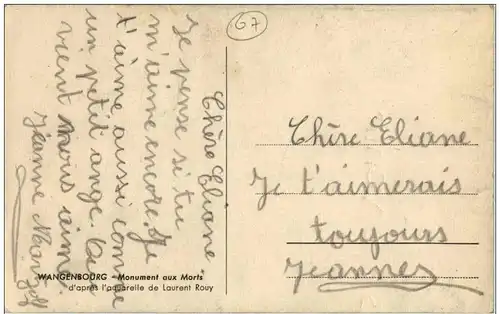 67
Chère Eliane
Je pense si tu
m'aime encore. Je
t'aime aussi comme
un petit ange. Qui
vient nous aime.
Jeanne
WANGENBOURG - Monument aux Morts
d'après l'aquarelle de Laurent Rouy
Chère Eliane
Je t'aimerais
toujours
Jeannes